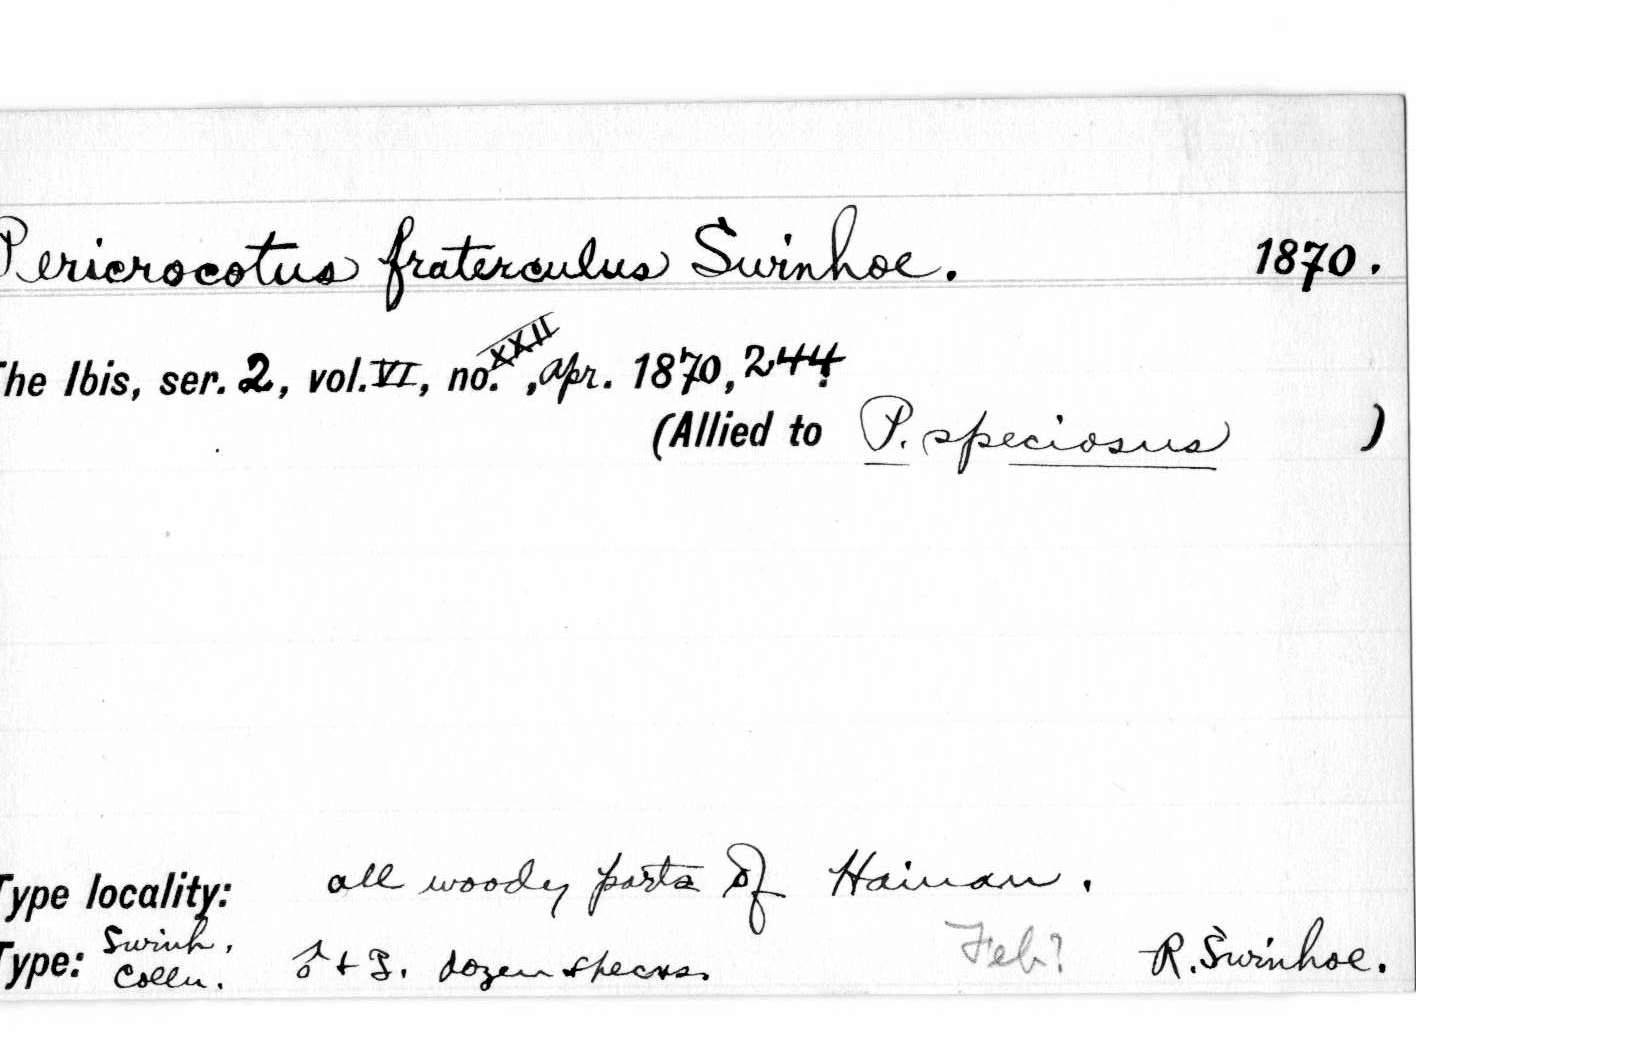 Pericrocotus fraterculus Swinhoe. 1870.
The Ibis, ser. 2, vol. VI, no. XXII, Apr. 1870, 244.
(Allied to P. speciosus )
Type locality: all woody parts of Hainan.
Type: Swinh. Colln. ♂ + ♀. dozen specns. Feb? R. Swinhoe.